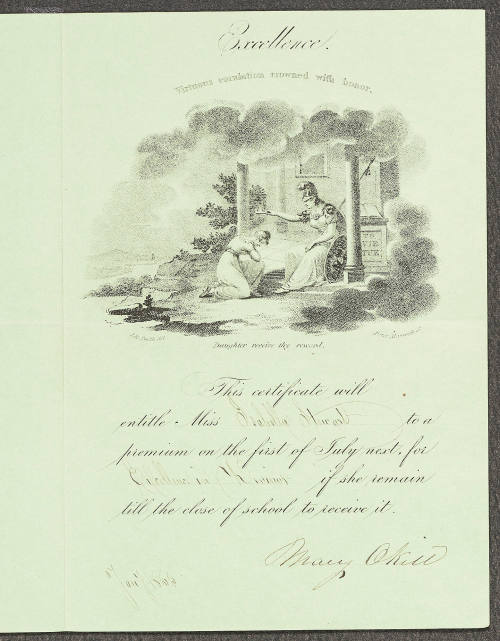 Excellence.
Virtuous emulation crowned with honor.
TO
VIR
TUE.
Daughter receive thy reward.
This certificate will
entitle Miss Isabella Stewart to a
premium on the first of July next, for
Excellence in if she remain
till the close of school to receive it.
Mary Okill